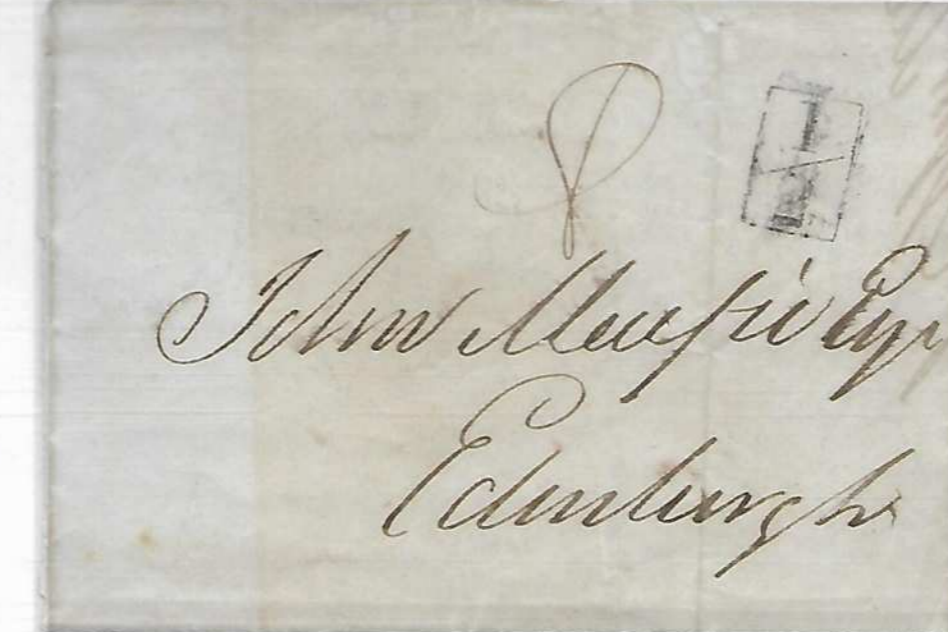 8
1/2
John Menzie Esqr
Edinburgh